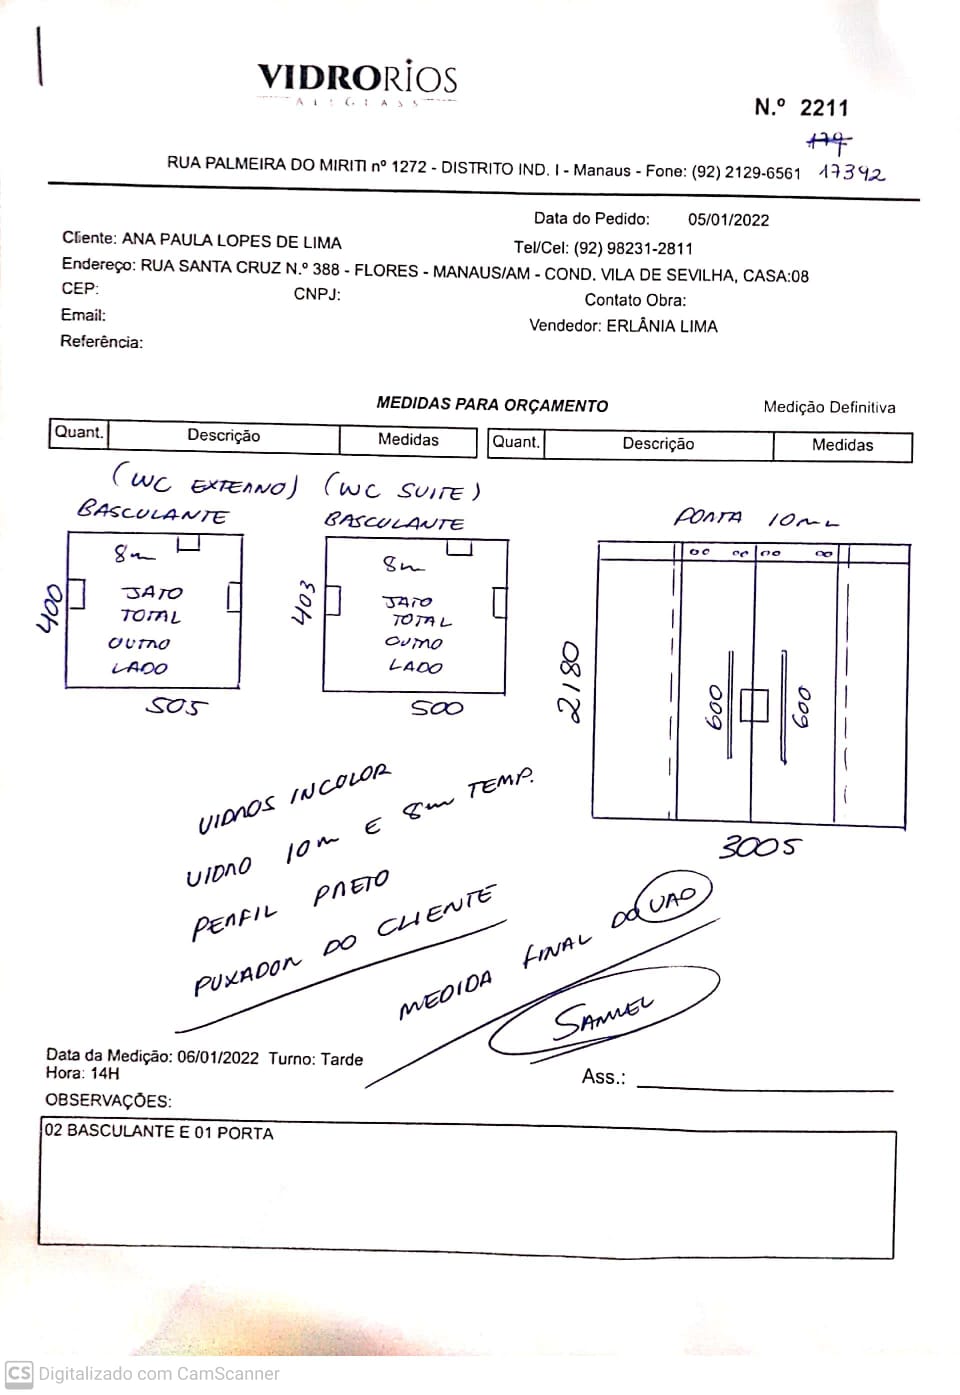 VIDRORIOS
ALIGLASS
N.º 2211
179
17392
RUA PALMEIRA DO MIRITI nº 1272 - DISTRITO IND. I - Manaus - Fone: (92) 2129-6561
Data do Pedido: 05/01/2022
Cliente: ANA PAULA LOPES DE LIMA
Tel/Cel: (92) 98231-2811
Endereço: RUA SANTA CRUZ N.º 388 - FLORES - MANAUS/AM - COND. VILA DE SEVILHA, CASA:08
CEP: CNPJ: Contato Obra:
Email:
Vendedor: ERLÂNIA LIMA
Referência:
MEDIDAS PARA ORÇAMENTO Medição Definitiva
Quant. Descrição Medidas Quant. Descrição Medidas
(WC EXTERNO) (WC SUITE)
BASCULANTE BASCULANTE PORTA 10ML
8m
JATO
TOTAL
OUTRO
LADO
400
505
8m
JATO
TOTAL
OUTRO
LADO
403
500
2180
600
600
3005
VIDROS INCOLOR
VIDRO 10m E 8m TEMP.
PERFIL PRETO
PUXADOR DO CLIENTE
MEDIDA FINAL DO VAO
SAMUEL
Data da Medição: 06/01/2022 Turno: Tarde
Hora: 14H
Ass.:
OBSERVAÇÕES:
02 BASCULANTE E 01 PORTA
CS Digitalizado com CamScanner